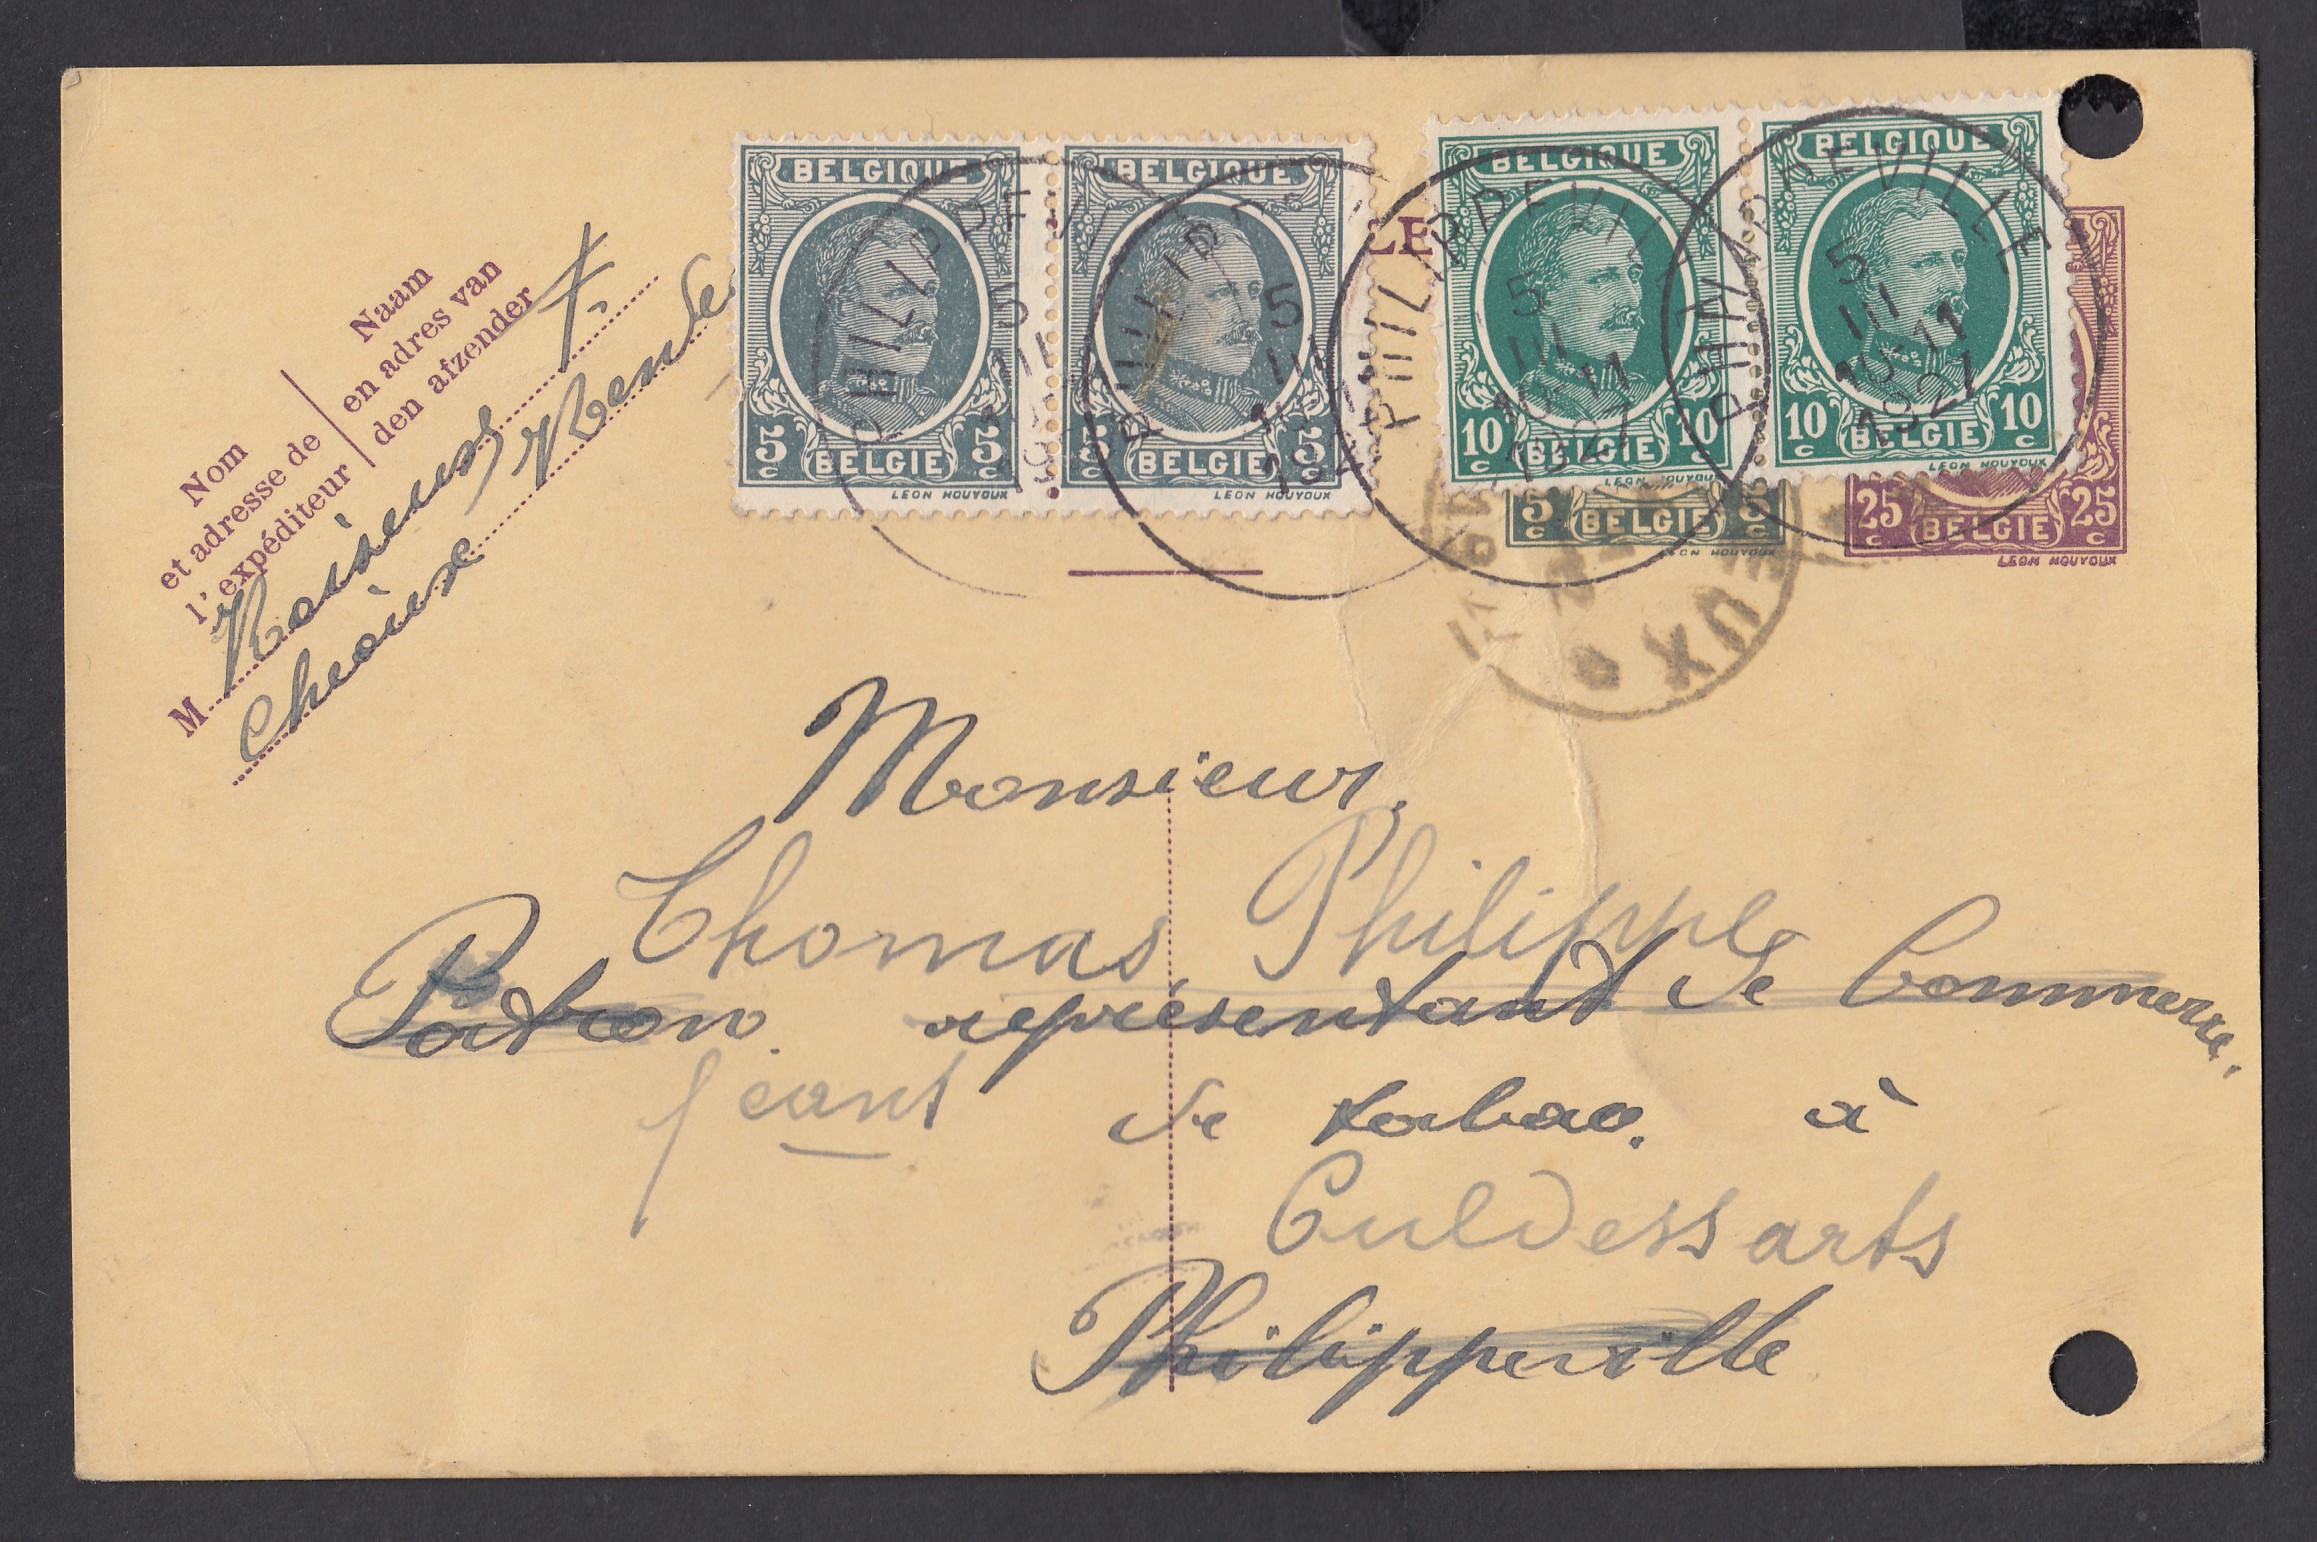 Nom
et adresse de
l'expéditeur
Naam
en adres van
den afzender
M
BELGIQUE
5 c BELGIE 5 c
LEON HOUYOUX
BELGIQUE
5 c BELGIE 5 c
LEON HOUYOUX
BELGIQUE
10 c BELGIE 10 c
LEON HOUYOUX
BELGIQUE
10 c BELGIE 10 c
LEON HOUYOUX
5 c BELGIE 5 c
LEON HOUYOUX
25 c BELGIE 25 c
LEON HOUYOUX
PHILIPPEVILLE
5
III
10-11
1927
PHILIPPEVILLE
5
III
10-11
1927
Monsieur,
Thomas Philippe
Patron représentant de Commerce.
de tabac. à
Culdessarts
Philippeville